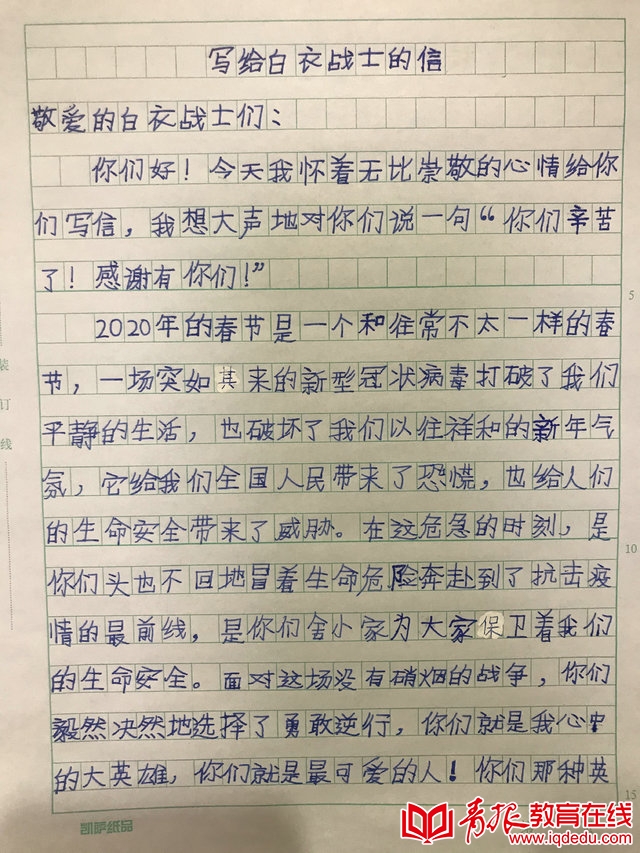 写给白衣战士的信
敬爱的白衣战士们：
你们好！今天我怀着无比崇敬的心情给你
们写信，我想大声地对你们说一句“你们辛苦
了！感谢有你们！”
5
2020年的春节是一个和往常不太一样的春
节，一场突如其来的新型冠状病毒打破了我们
平静的生活，也破坏了我们以往祥和的新年气
氛，它给我们全国人民带来了恐慌，也给人们
的生命安全带来了威胁。在这危急的时刻，是
10
你们头也不回地冒着生命危险奔赴到了抗击疫
情的最前线，是你们舍小家为大家保卫着我们
的生命安全。面对这场没有硝烟的战争，你们
毅然决然地选择了勇敢逆行，你们就是我心中
的大英雄，你们就是最可爱的人！你们那种英
15
装
订
线
凯萨纸品
青报教育在线
www.iqdedu.com